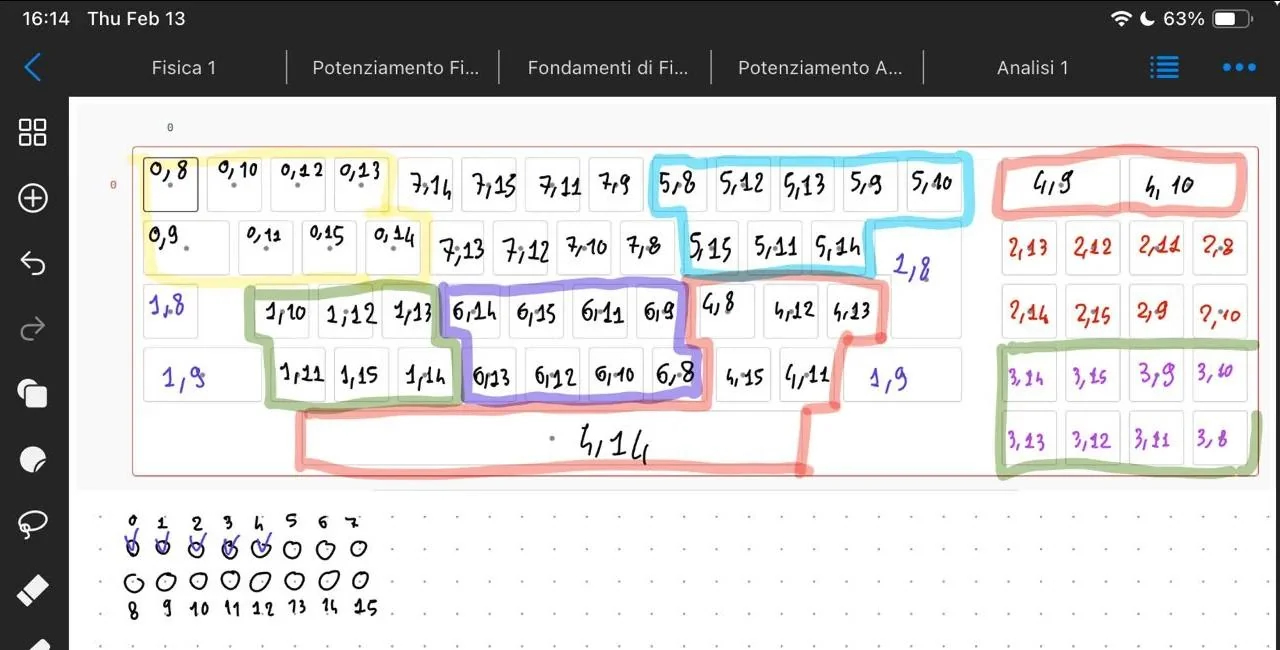 16:14 Thu Feb 13 63%
Fisica 1 Potenziamento Fi... Fondamenti di Fi... Potenziamento A... Analisi 1
0
0
0,8 0,10 0,12 0,13 7,14 7,15 7,11 7,9 5,8 5,12 5,13 5,9 5,10 4,9 4,10
0,9 0,11 0,15 0,14 7,13 7,12 7,10 7,8 5,15 5,11 5,14 1,8 2,13 2,12 2,11 2,8
1,8 1,10 1,12 1,13 6,14 6,15 6,11 6,9 4,8 4,12 4,13 2,14 2,15 2,9 2,10
1,9 1,11 1,15 1,14 6,13 6,12 6,10 6,8 4,15 4,11 1,9 3,14 3,15 3,9 3,10
4,14 3,13 3,12 3,11 3,8
0 1 2 3 4 5 6 7
8 9 10 11 12 13 14 15